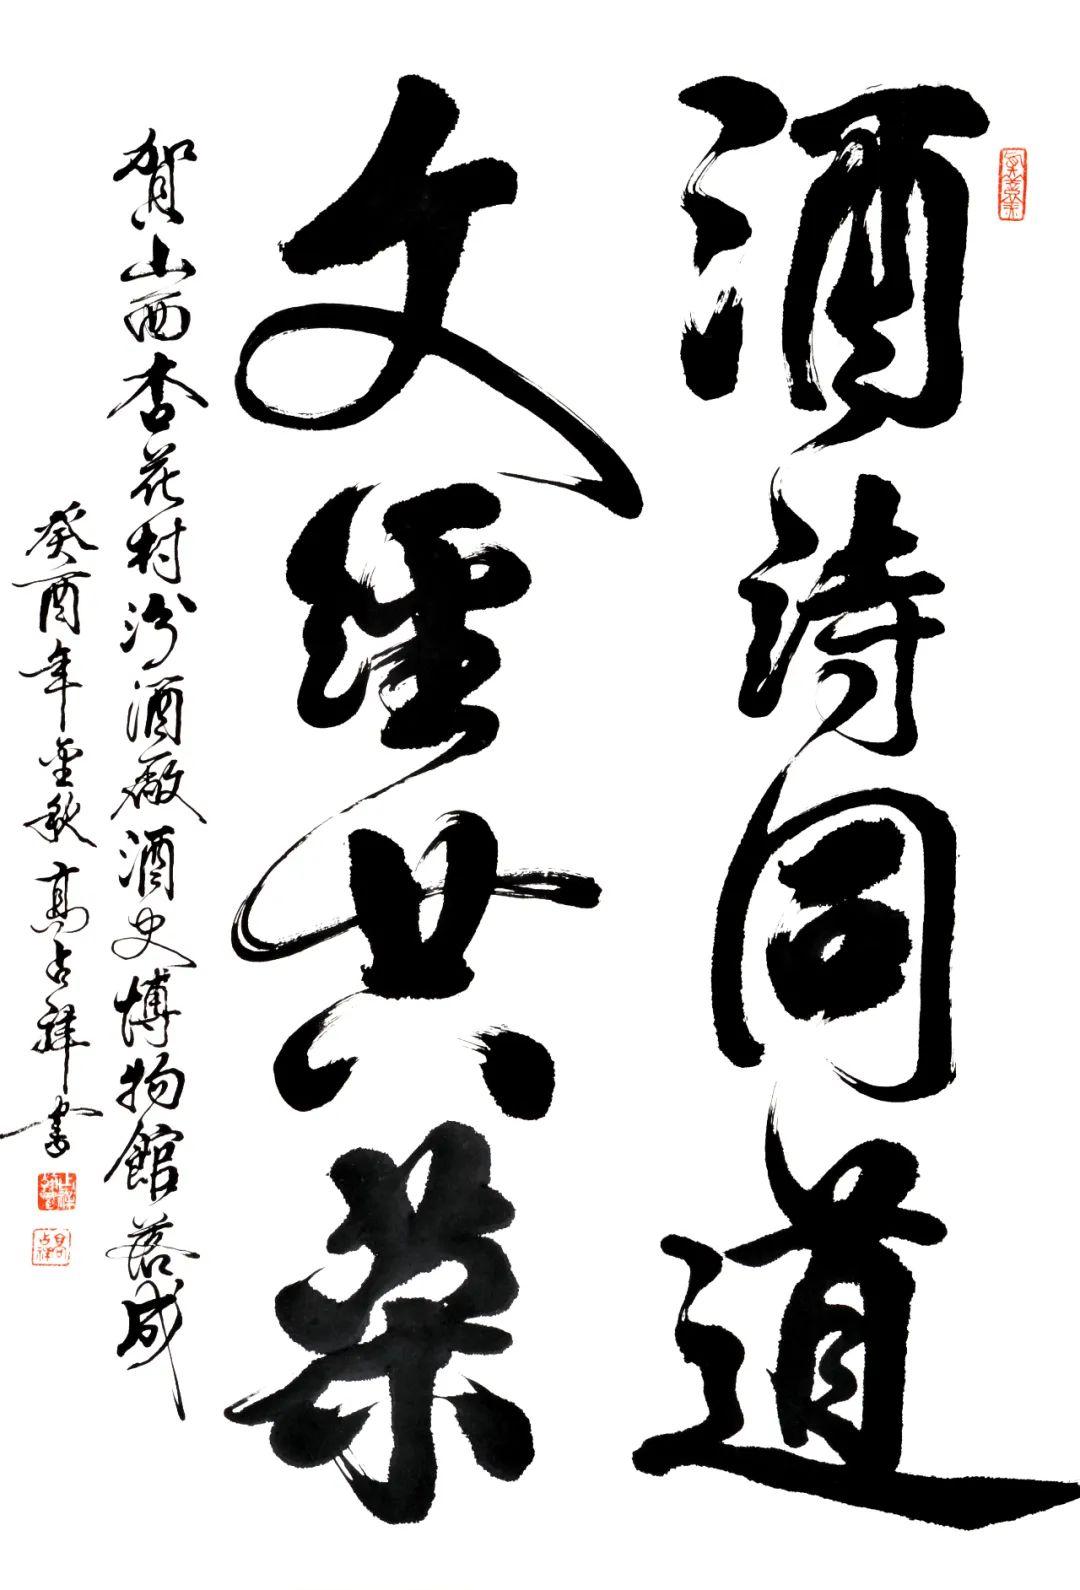 酒诗同道
文经共荣
賀山西杏花村汾酒廠酒史博物館落成
癸酉年金秋高占祥書
高占祥